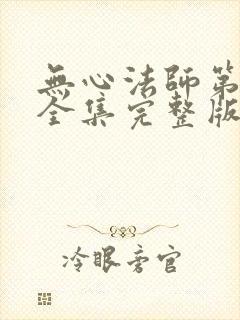 無心法師第
全集完整版
冷眼旁官